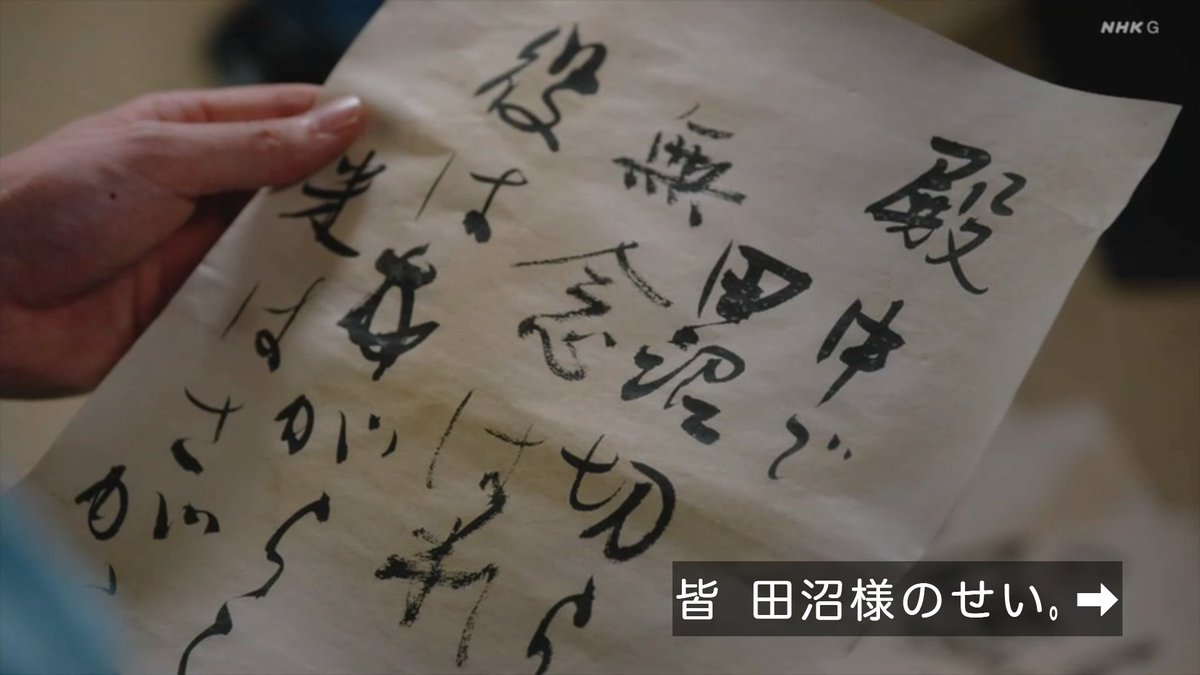 NHK G
殿中で
田沼切ら
無念はれ
役は
がら
はさが
皆 田沼様のせい。➡